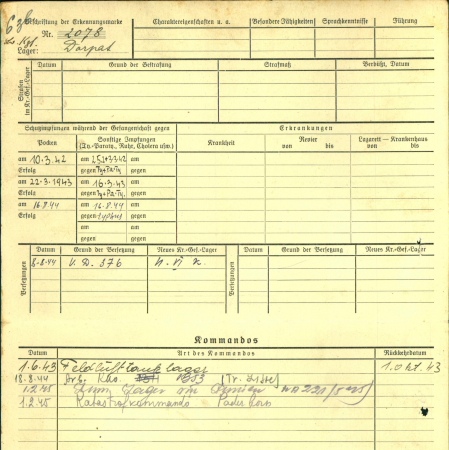 Beschriftung der Erkennungsmarke
Nr. 2078
Lager: Dorpat
Charaktereigenschaften u. a.
Besondere Fähigkeiten
Sprachkenntnisse
Führung
Strafen im Kr.-Gef.-Lager
Datum
Grund der Bestrafung
Strafmaß
Verbüßt, Datum
Schutzimpfungen während der Gefangenschaft gegen
Erkrankungen
Pocken
Sonstige Impfungen
(Ty.-Paraty., Ruhr, Cholera usw.)
Krankheit
Revier
von bis
Lazarett — Krankenhaus
von bis
am 10.3.42
am
am
Erfolg
gegen
gegen
am 22.3.1943
am 16.3.43
am
Erfolg
gegen Ty+Pa-Ty.
gegen
am 16.8.44
am 16.8.44
am
Erfolg
gegen
gegen
am
am
gegen
gegen
Versetzungen
Datum
Grund der Versetzung
Neues Kr.-Gef.-Lager
Versetzungen
Datum
Grund der Versetzung
Neues Kr.-Gef.-Lager
8.8.44
V. D. 376
Kommandos
Datum
Art des Kommandos
Rückkehrdatum
1.6.43
Feldlufttanklager
1.Okt.43
18.8.44
Arb. Kdo.
1353
1.2.45
1.2.45
Paderborn